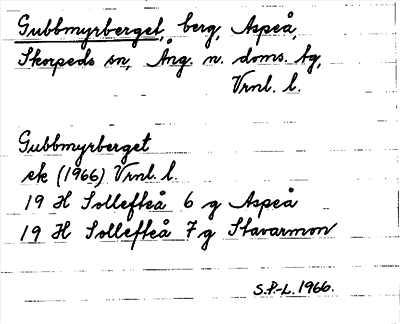 Gubbmyrberget, berg, Aspeå,
Skorpeds sn, Ång. n. doms. tg,
Vrnl. l.
Gubbmyrberget
ek (1966) Vrnl. l.
19 H Sollefteå 6 g Aspeå
19 H Sollefteå 7 g Stavarmon
S.P-L. 1966.